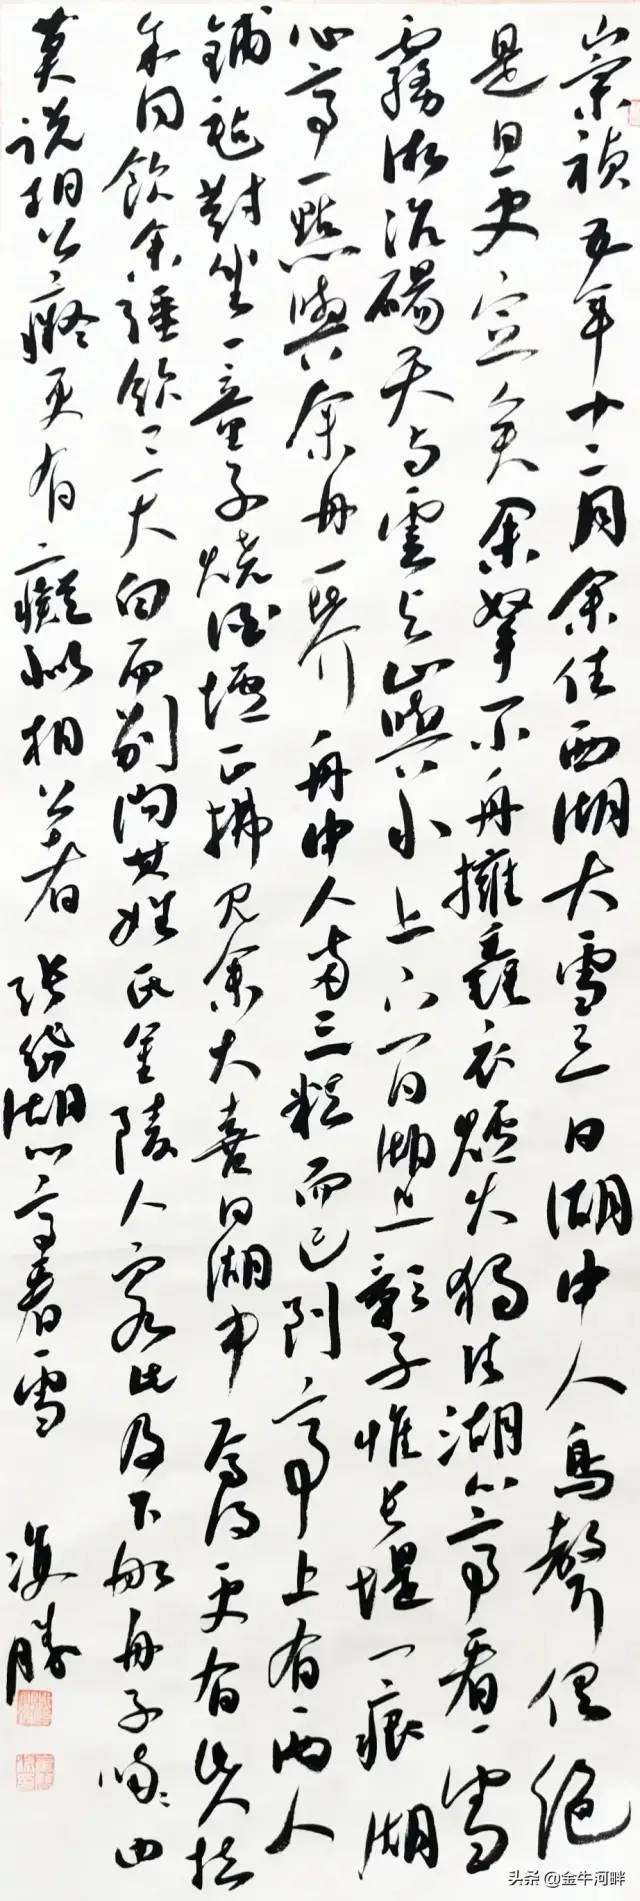 崇禎五年十二月余住西湖大雪三日湖中人鳥聲俱絕
是日更定矣余拏一小舟擁毳衣爐火獨往湖心亭看雪
霧淞沆碭天与雲与山與水上下一白湖上影子惟長堤一痕湖
心亭一點與余舟一芥舟中人兩三粒而已到亭上有兩人
鋪氈對坐一童子燒酒壚正沸見余大喜曰湖中焉得更有此人拉
余同飲余強飲三大白而別問其姓氏金陵人客此及下船舟子喃〻曰
莫說相公癡更有癡似相公者 張岱湖心亭看雪 勝
头条 @金牛河畔